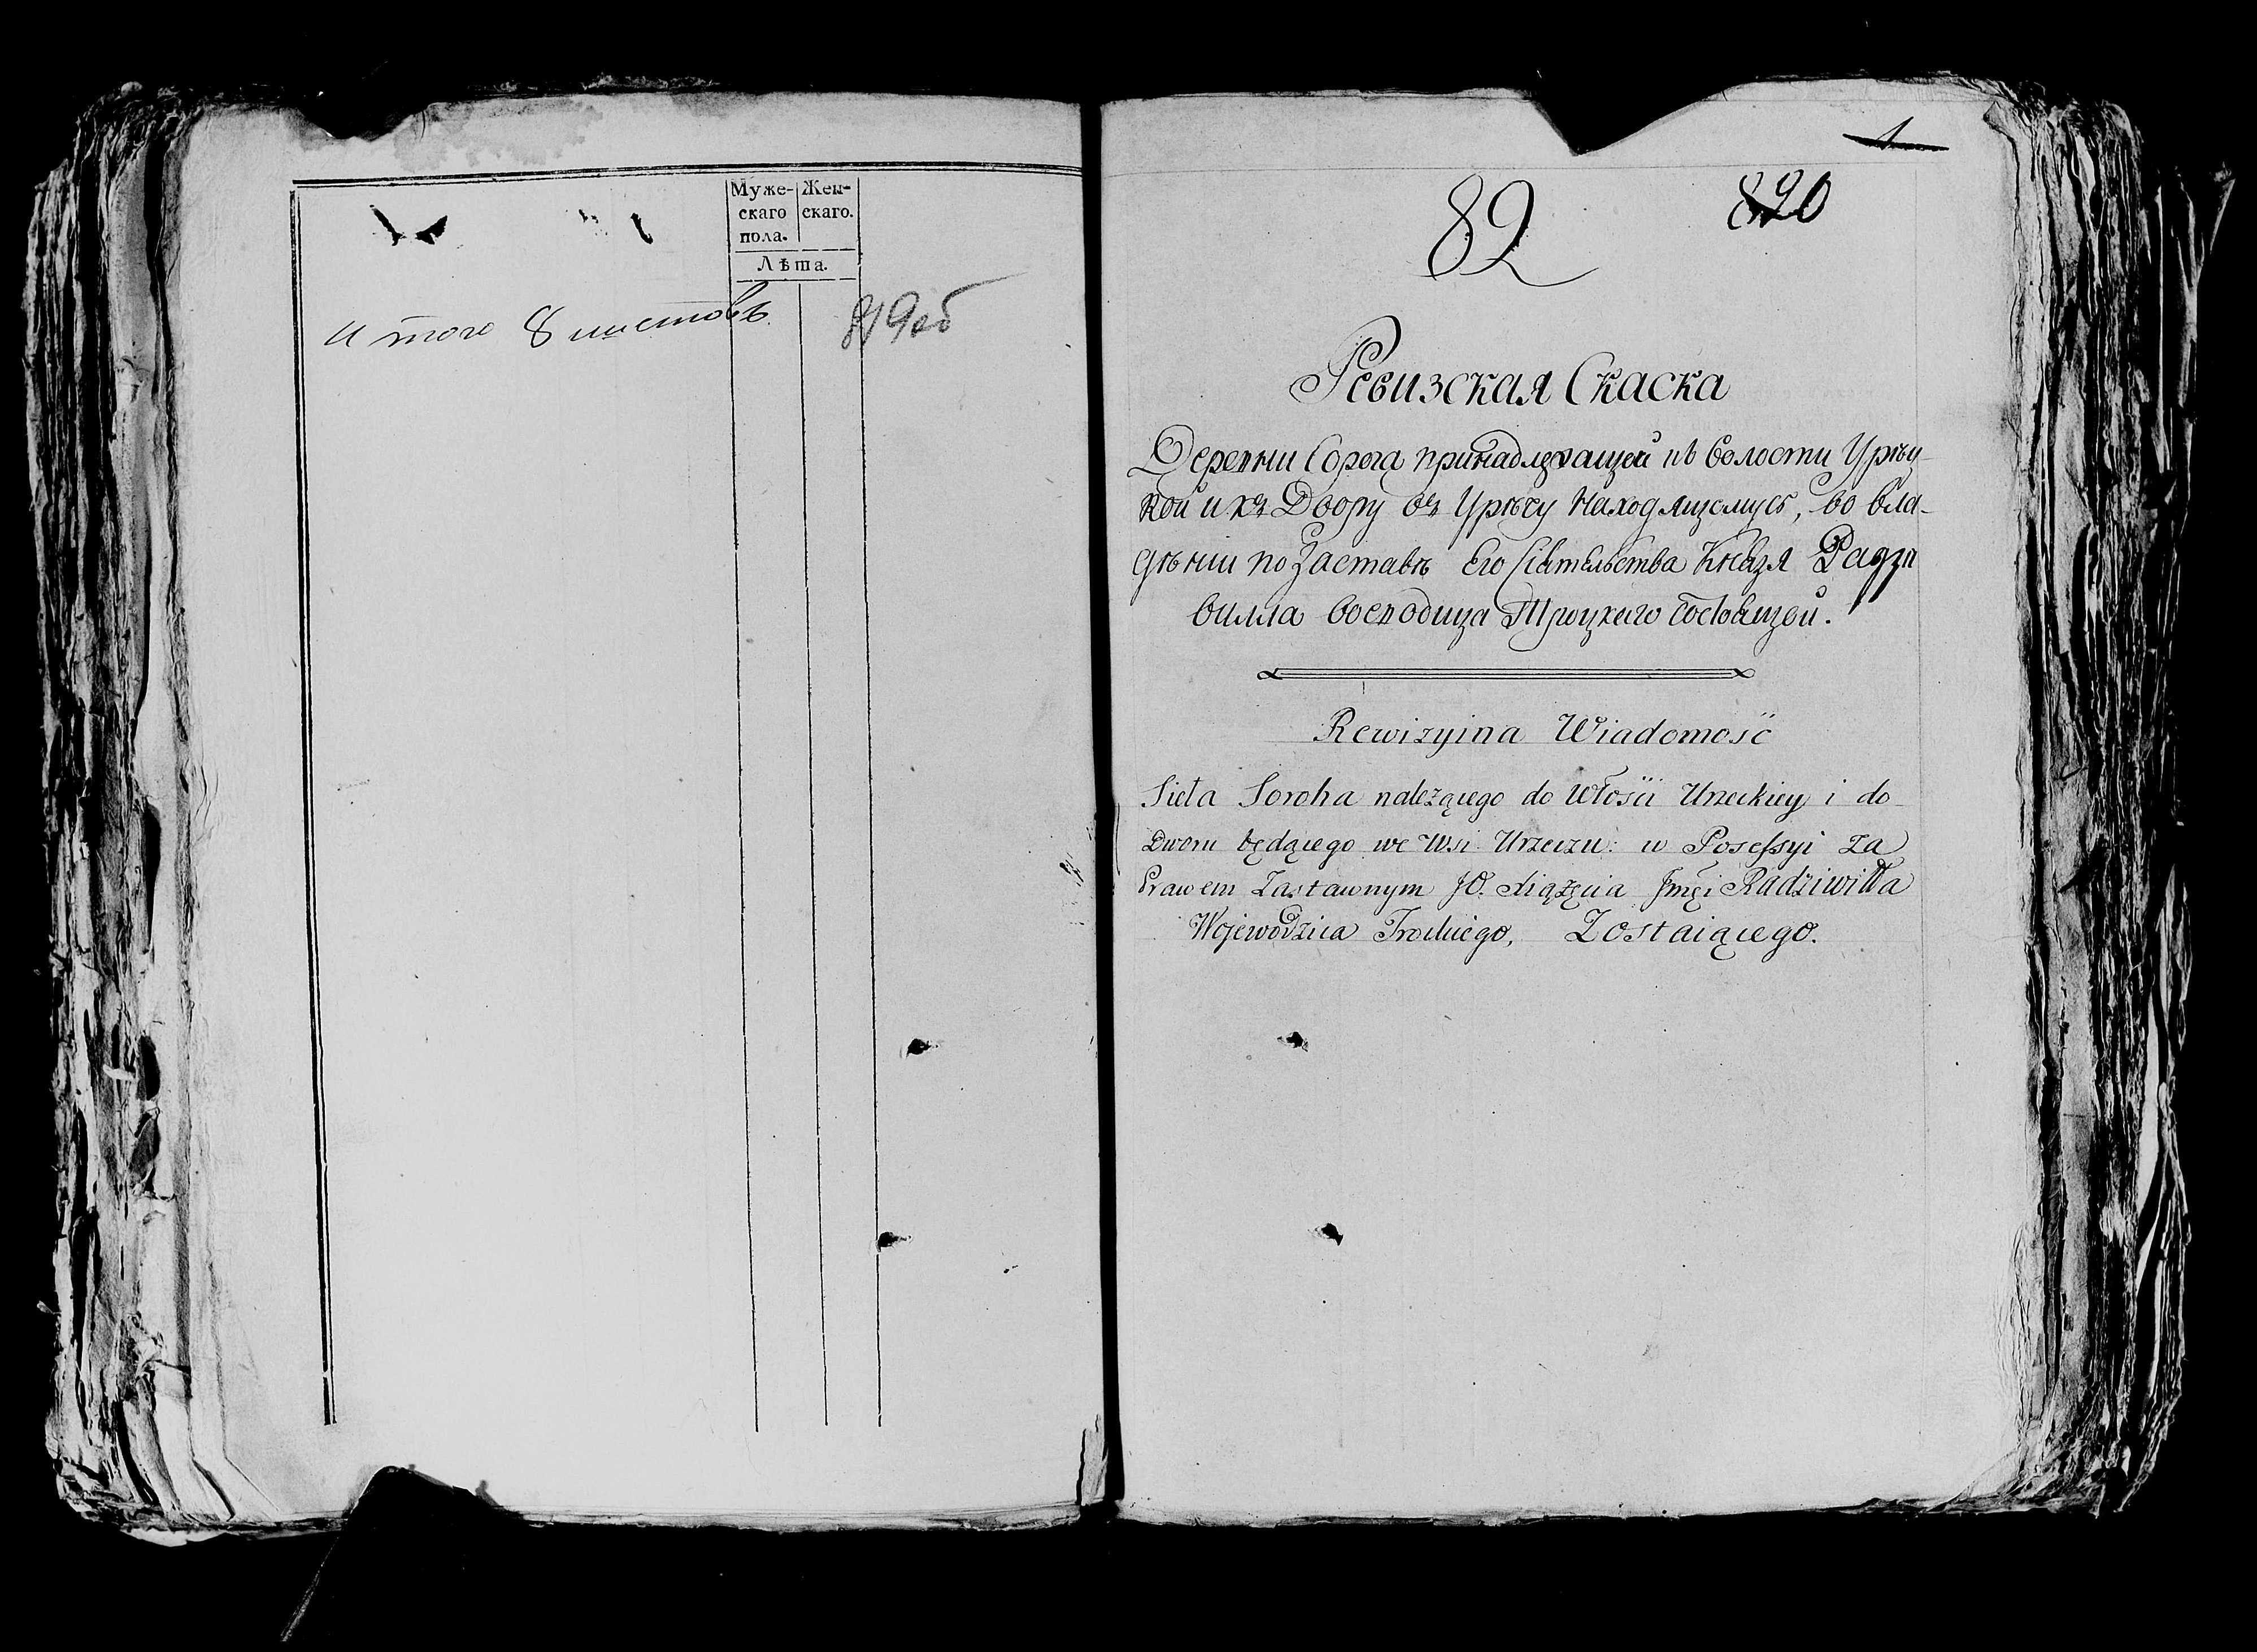 Муже-
скаго
пола.
Жен-
скаго.
Лѣта.
Итого 8 листовъ
819об
1
82
820
Ревизская Скаска
Деревни Сорога принадлежащей къ волости Урѣц-
кой и къ Двору въ Урѣчу находящемусь, во вла-
дѣнии по Заставѣ Его Сіятельства Князя Радзи
вилла воеводица Троцкаго состоящей.
Rewizyina Wiadomość
Sieła Soroha należącego do Włości Urzeckiey i do
Dworu będącego we Wsi Urzeczu: w Possessyi za
Prawem Zastawnym JO. Xiążęcia Jmći Radziwiłła
Wojewodzica Trockiego, Zostaiącego.